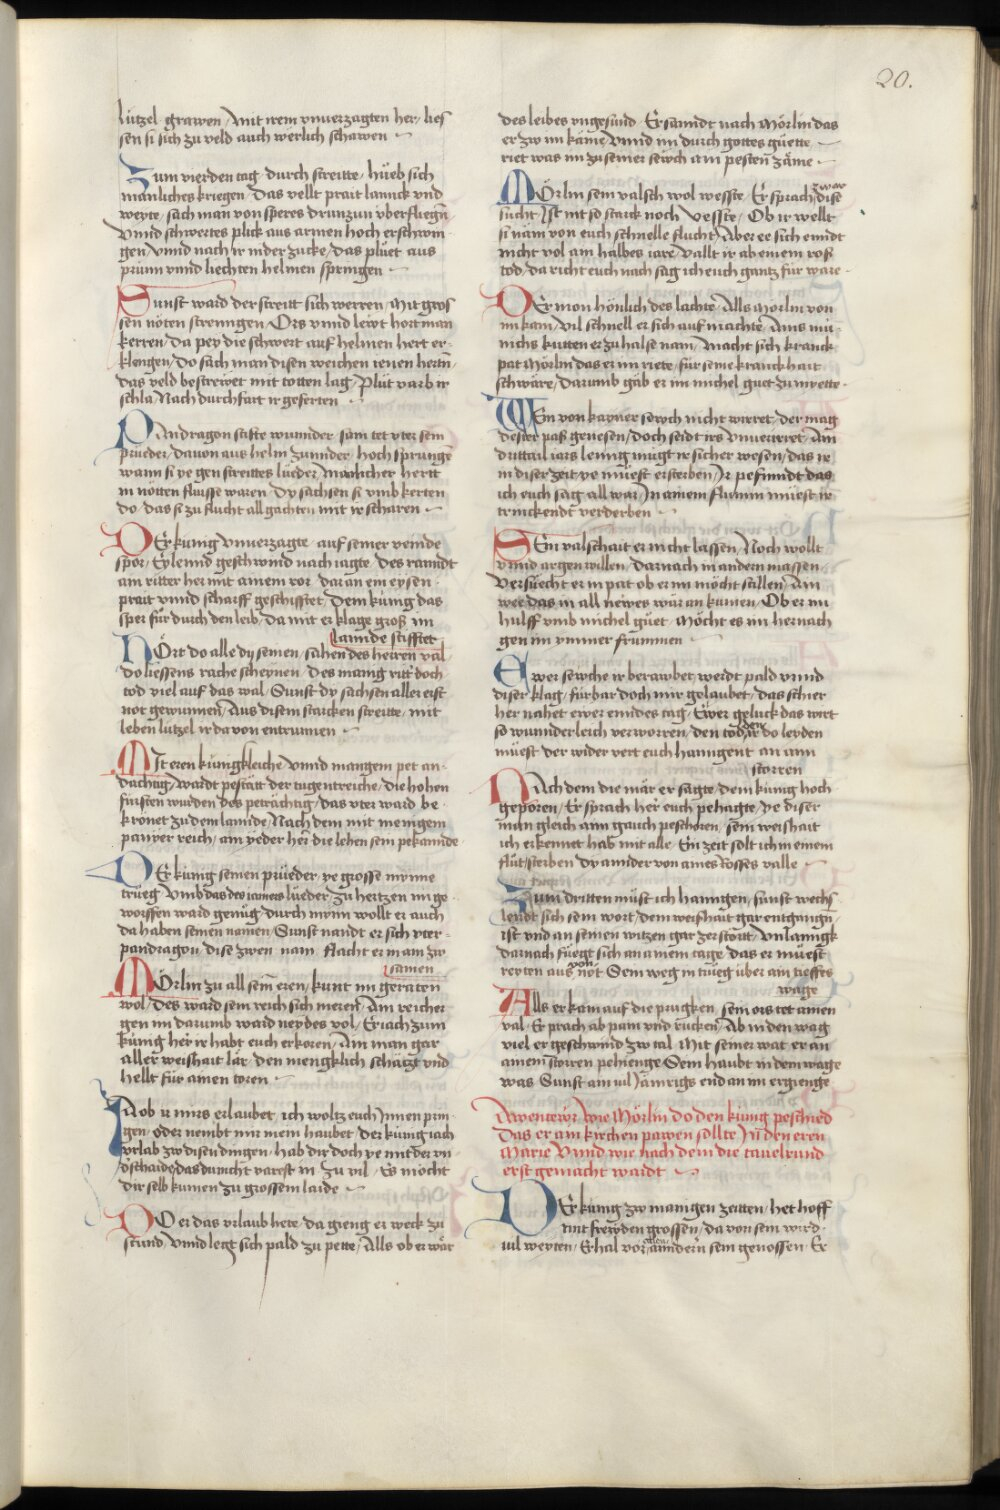 20.
lützel grawen / Mit irem vnuerzagten her / lies
sen si sich zu veld auch werlich schawen
Zum vierden tag durch streitte / hüeb sich
mänliches kriegen / Das vellt prait lannck vnd
weyte / sach man von speres drunzun vberfliegn
Vnnd schwertes plick aus armen hoch erschwin
gen / vnnd nach ir nider zucke / das plüet aus
prünn vnnd liechten helmen springen
Sunst ward der streitt sich werren / Mit gros
sen nöten strenngen / Ors vnnd lewt hort man
kerren / da pey die schwert auf helmen hert er-
klengen / do sach man disen weichen ienen hertn
das veld bestrewet mit totten lag / Plüt varb ir
schla / Nach durchfart ir geferten
PAndragon stifte wunnder / sam tet vter sein
prueder / dauon aus helm zunnder / hoch sprungn
wann si ye gen streittes lüeder / Manlicher hertt
in nötten flinsse waren / Dy sachsen si vmb kerten
do / das si zu flucht all gachten mit ir scharen
DEr kunig vnuerzagte / auf seiner veinde
spor / Eylennd geschwind nach iagte / des ranndt
am ritter her mit ainem ror / daran ein eysen
prait vnnd scharff geschifftet / Dem kunig das
sper für durch den leib / da mit er klage groß im
lannde stifftet
HOrt do alle dy seinen / sahen des herren val
do liessens rache scheynen / des manig ritt doch
tod viel auf das wal / Sunst dy sachsen aller erst
not gewunnen / Aus disem starcken streitte / mit
leben lützel ir da von entrunnen
MIt eren künigkleiche / Vnnd mangem pet an-
dachtig / Wardt pestätt der tugentreiche / die hohen
fursten wurden des petrachtig / das vter ward be
krönet zu dem lannde / Nach dem mit menigem
panyer reich / am yeder herr die lehen sein pekannde
DEr kunig seinen prüeder / ye grosse mynne
trüeg / Vmb das des iamers lüeder / zu hertzen im ge
worffen ward genüg / durch mynn wollt er auch
da haben seinen namen / Sunst nandt er sich vter-
pandragon / dise zwen nam flacht er in ain zw
samen
MOrlin zu all sein eren / kunt im geraten
wol / des ward sein reich sich meren / Am reicher
gen im darumb ward neydes vol / Er iach zum
künig herr ir habt euch erkoren / Ain man gar
aller weishait lär / den mengklich schätzt vnd
hellt für ainen toren
IA ob ir mirs erlaubet / ich woltz euch Innen prin
gen / oder nembt mir mein haubet / Der künig iach
vrlab zw disen dingen / hab dir doch ye mit der vn
dschaide / das du nicht varest in zu vil / Es möcht
dir selb kumen zu grossem laide
DO er das vrlaub hete / da gieng er weck zu
stund / Vnnd legt sich pald zu pette / Alls ob er wär
des leibes vngesund / Er sanndt nach Mörlin das
er zw im käme / Vnnd im durch gottes güette
riet was im zu seiner sewch am pesten zäme
MOrlin sein valsch wol wesste / Er sprach zwar dise
sucht / Ist nit so starck noch vesste / Ob ir wellt
si näm von euch schnelle flucht / Aber ee sich enndt
nicht vol am halbes iare / Vallt ir ab einem roß
tod / da richt euch nach sag ich euch gantz für ware
DEr mon hönlich des lachte / Alls Morlin von
im kam / vil schnell er sich auf machte / Ains mü-
nichs kutten er zu halse nam / Macht sich kranck
pat Mörlin das er im riete / für seine kranckhait
schwäre / Darumb gäb er im michel guet zu miette
WEin von kayner sewch nicht wirret / der mag
dester paß genesen / doch seidt irs vnuerirret / Am
drittail iars lenng mügt ir sicher wesen / das ir
in diser zeit ye müest ersterben / Ir pefinndt das
ich euch sag all war / In ainem flumm müest ir
trinckendt verderben
SEin valschait er nicht lassen / Noch wollt
vnnd argen willen / Darnach in andern massen
Versuecht er in pat ob er im möcht stillen / Am
wee das in all newes wär an kumen / Ob er im
hulff vmb michel güet / Möcht es im hernach
gen im ymmer frummen
EWer sewche ir berawbet / werdt pald vnnd
diser klag / fürbar doch mir gelaubet / das schier
her nahet ewer enndes tag / Ewer geluck das wirt
so wunnderleich verworren / den tod den ir do leyden
müest der wider vert euch hanngent an ainn
storren
NAch dem die mär er sagte / dem künig hoch
geporen / Er sprach herr euch pehagte / ye diser
man gleich ainn gauch peschoren / sein weishait
ich erkennet hab mit alle / Ein zeit solt ich in einem
flüt / sterben / dy annder von aines Rosses valle
Zum dritten müst ich hanngen / sunst wechs
lendt sich sein wort / dem weishait gar entgangn
ist vnd an seinen witzen gar zerstort / Vnlanngk
darnach füegt sich an ainem tage / das er müest
reyten aus von not / Sein weg in trüeg über ain tieffes
wage
Alls er kam auf die prugken / sein ors tet ainen
val / Er prach ab pain vnd rucken / Ab in den wag
viel er geschwind zw tal / Mit seiner wat er an
ainem storren pehienge / Sein haubt in dem wage
was / Sunst am vil iämrigs end an im ergienge
Awentewr wie Mörlin do den künig peschied
Das er am kirchen pawen sollte / In den eren
Marie / Vnnd wie nach dem die tauelrund
erst gemacht wardt
DEr kunig zw manigen zeitten / het hoff
mit frewden grossen / da von sein wird
vil weyten / Erhal vor allen anndern sein genossen / Er